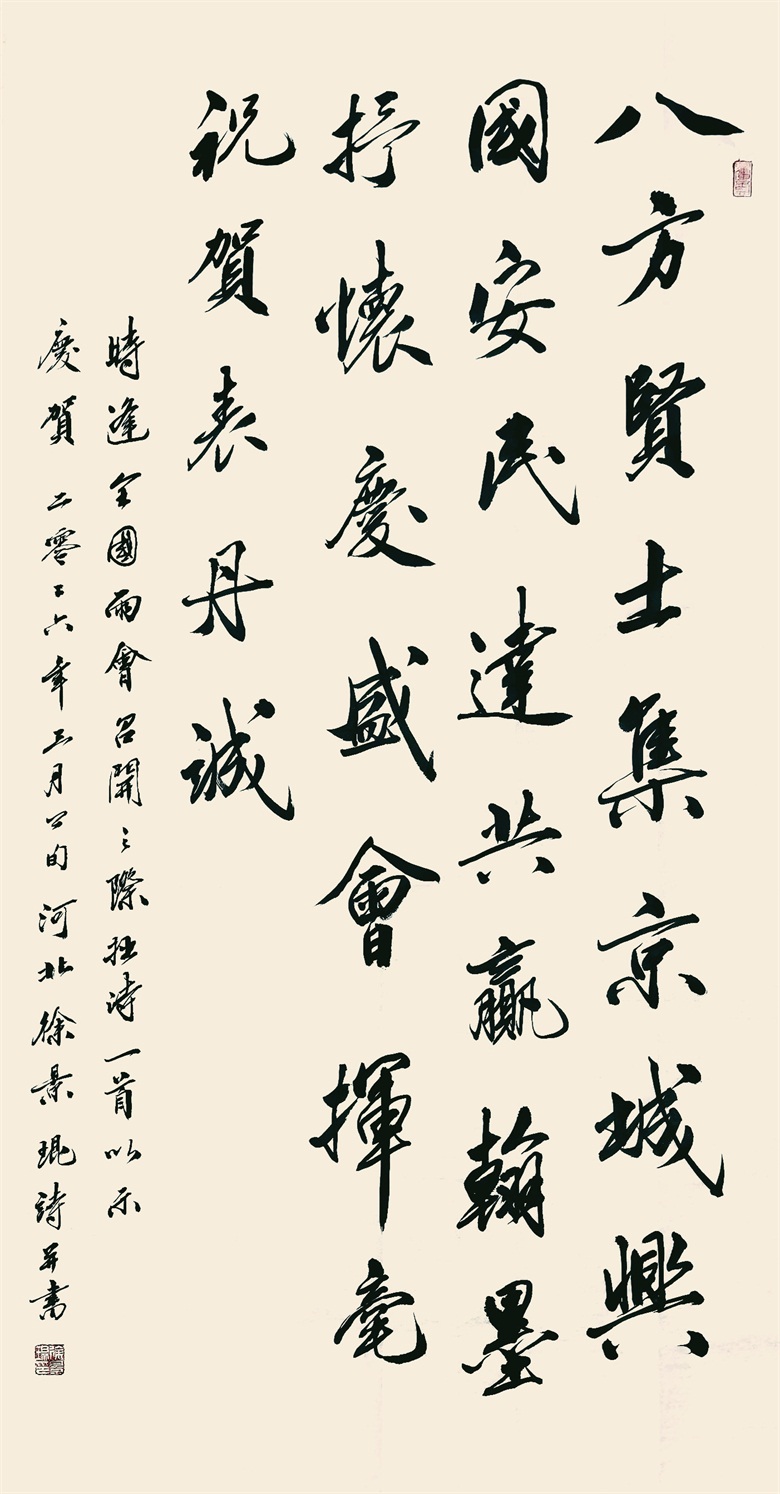 八方賢士集京城興
國安民達共贏翰墨
抒懷慶盛會揮毫
祝賀表丹誠
時逢全國兩會召開之際拙詩一首以示
慶賀 二零二六年三月上旬河北徐景琨詩并書